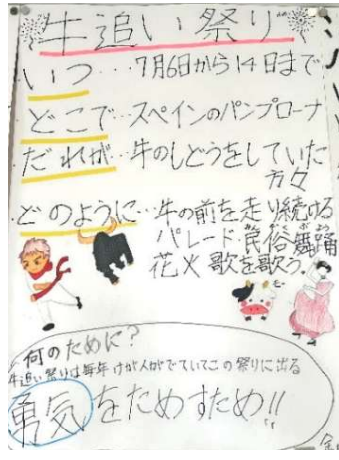 牛追い祭り
いつ…7月6日から14日まで
どこで…スペインのパンプローナ
だれが…牛のしどうをしていた
方々
どのように…牛の前を走り続ける
パレード・民俗舞踊
花火 歌を歌う。
モー
何のために?
牛追い祭りは毎年けが人がでていてこの祭りに出る
勇気をためすため!!